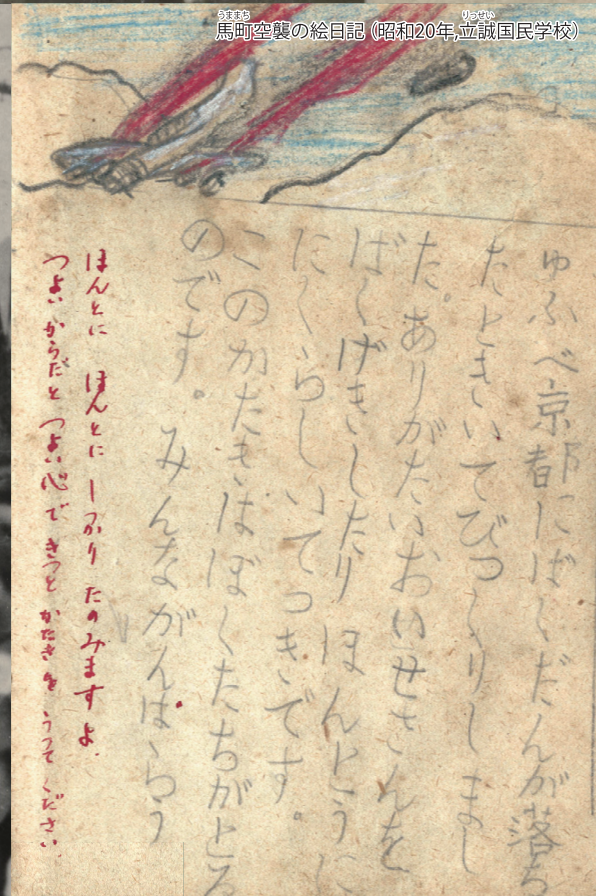 うままち りっせい
馬町空襲の絵日記（昭和20年,立誠国民学校）
ゆふべ京都にばくだんが落ち
たときいてびつくりしまし
た。ありがたいおいせさんを
ばくげきしたり ほんとうに
にくらしいてつきです。
このかたきはぼくたちがとる
のです。みんながんばらう
ほんとに ほんとに しつかり たのみますよ
つよいからだと つよい心で きつと かたきを うつてください。